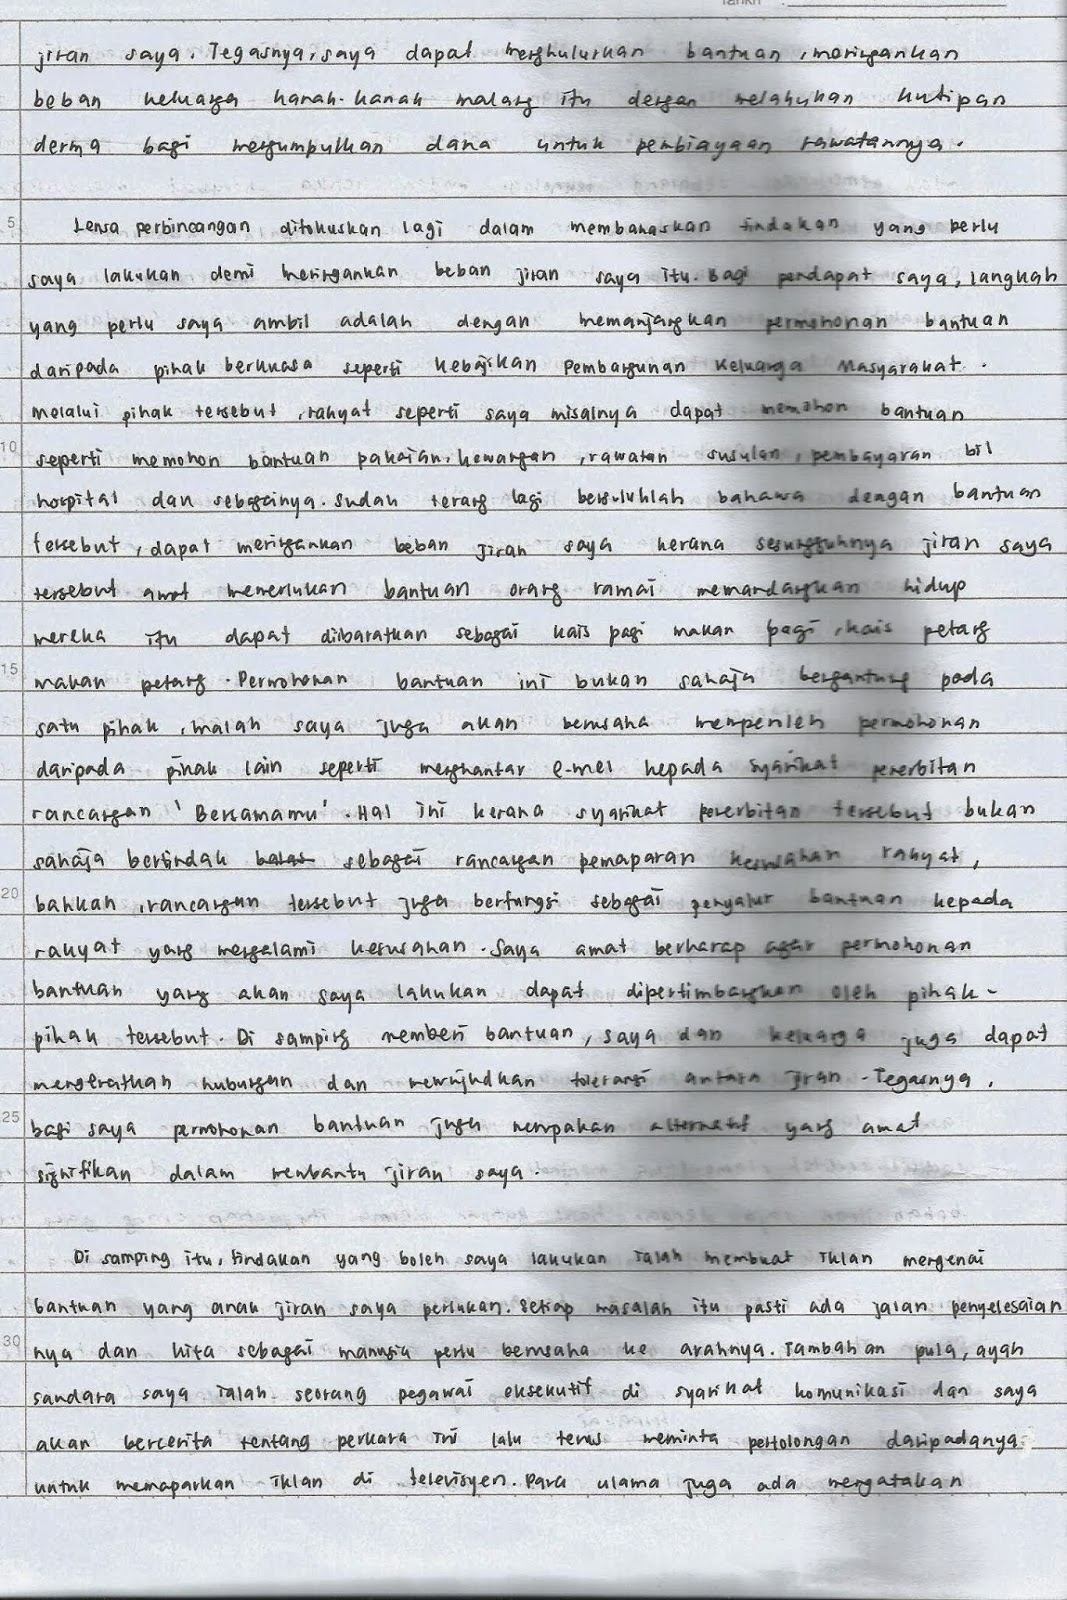 Tarikh :
jiran saya. Tegasnya, saya dapat menghulurkan bantuan, meringankan
beban keluarga kanak-kanak malang itu dengan melakukan kutipan
derma bagi mengumpulkan dana untuk pembiayaan rawatannya.
5 Lensa perbincangan difokuskan lagi dalam membahaskan tindakan yang perlu
saya lakukan demi meringankan beban jiran saya itu. Bagi pendapat saya, langkah
yang perlu saya ambil adalah dengan memanjangkan permohonan bantuan
daripada pihak berkuasa seperti Kebajikan Pembangunan Keluarga Masyarakat.
Melalui pihak tersebut, rakyat seperti saya misalnya dapat memohon bantuan
10 seperti memohon bantuan pakaian, kewangan, rawatan susulan, pembayaran bil
hospital dan sebagainya. Sudah terang lagi bersuluhlah bahawa dengan bantuan
tersebut, dapat meringankan beban jiran saya kerana sesungguhnya jiran saya
tersebut amat memerlukan bantuan orang ramai memandangkan hidup
mereka itu dapat diibaratkan sebagai kais pagi makan pagi, kais petang
15 makan petang. Permohonan bantuan ini bukan sahaja bergantung pada
satu pihak, malah saya juga akan berusaha memperoleh permohonan
daripada pihak lain seperti menghantar e-mel kepada syarikat penerbitan
rancangan 'Bersamamu'. Hal ini kerana syarikat penerbitan tersebut bukan
sahaja bertindak sebagai rancangan pemaparan kesusahan rakyat,
20 bahkan, rancangan tersebut juga berfungsi sebagai penyalur bantuan kepada
rakyat yang mengalami kesusahan. Saya amat berharap agar permohonan
bantuan yang akan saya lakukan dapat dipertimbangkan oleh pihak-
pihak tersebut. Di samping memberi bantuan, saya dan keluarga juga dapat
mengeratkan hubungan dan mewujudkan toleransi antara jiran. Tegasnya,
25 bagi saya permohonan bantuan juga merupakan alternatif yang amat
signifikan dalam membantu jiran saya.
Di samping itu, tindakan yang boleh saya lakukan ialah membuat iklan mengenai
bantuan yang anak jiran saya perlukan. Setiap masalah itu pasti ada jalan penyelesaian
30 nya dan kita sebagai manusia perlu berusaha ke arahnya. Tambahan pula, ayah
saudara saya ialah seorang pegawai eksekutif di syarikat komunikasi dan saya
akan bercerita tentang perkara ini lalu terus meminta pertolongan daripadanya
untuk memaparkan iklan di televisyen. Para ulama juga ada mengatakan